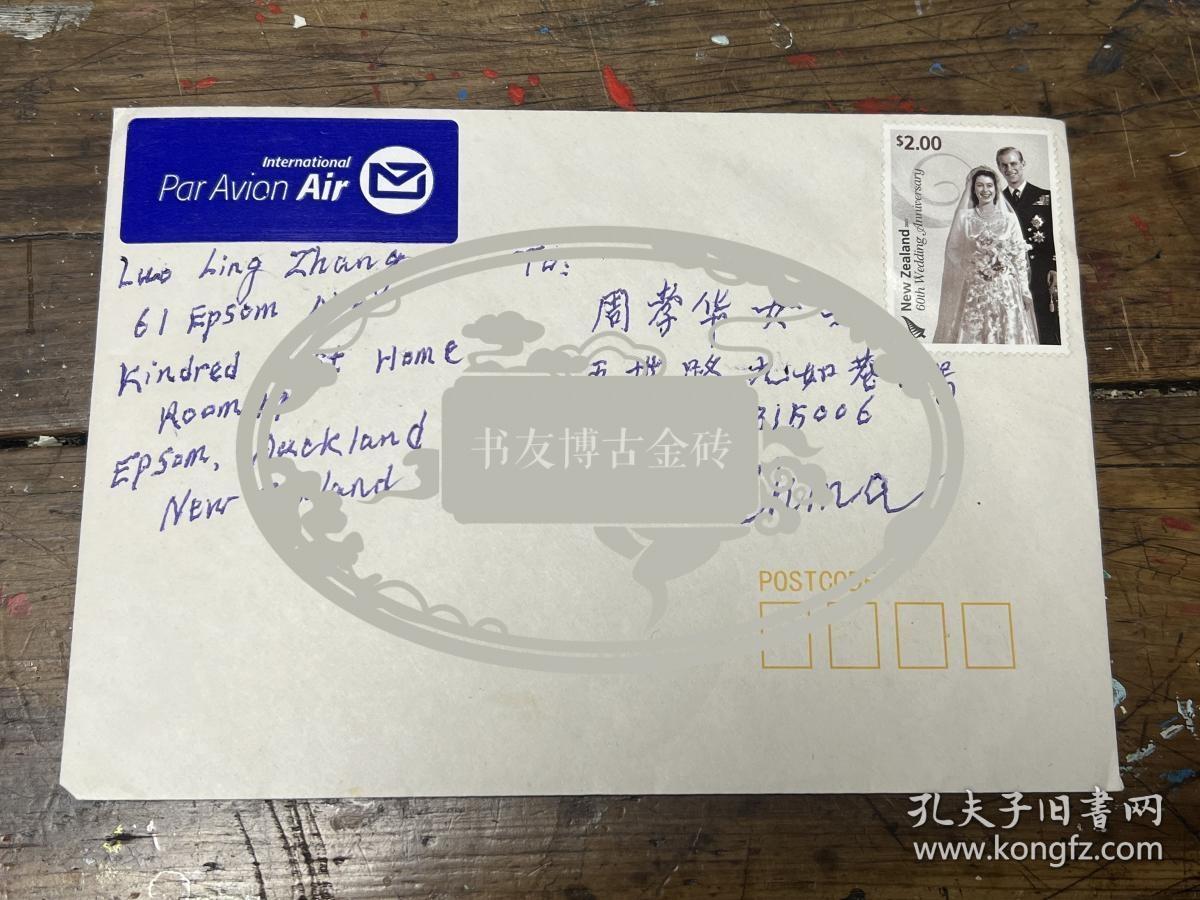 International
Par Avion Air
$2.00
New Zealand 2007
60th Wedding Anniversary
Luo Ling Zhang
61 Epsom
Kindred Home
Room
Epsom, Auckland
New
To:
周孝华
路 巷
315006
China
书友博古金砖
POSTCODE
孔夫子旧书网
www.kongfz.com